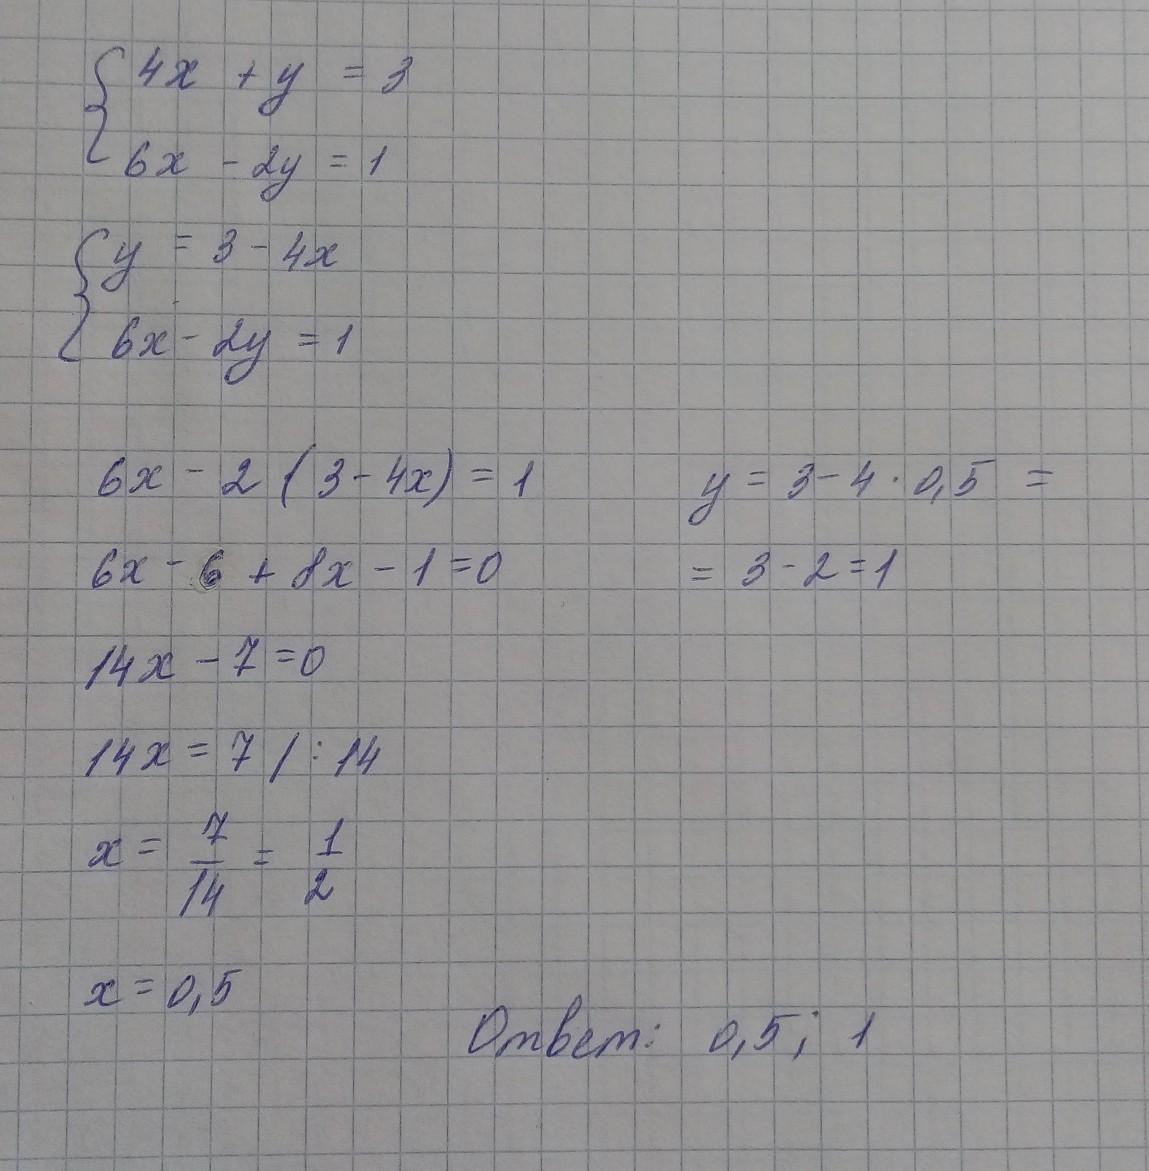 4x + y = 3
6x - 2y = 1
y = 3 - 4x
6x - 2y = 1
6x - 2 (3 - 4x) = 1
6x - 6 + 8x - 1 = 0
14x - 7 = 0
14x = 7 / : 14
x = 7/14 = 1/2
x = 0,5
y = 3 - 4 · 0,5 =
= 3 - 2 = 1
Ответ: 0,5; 1